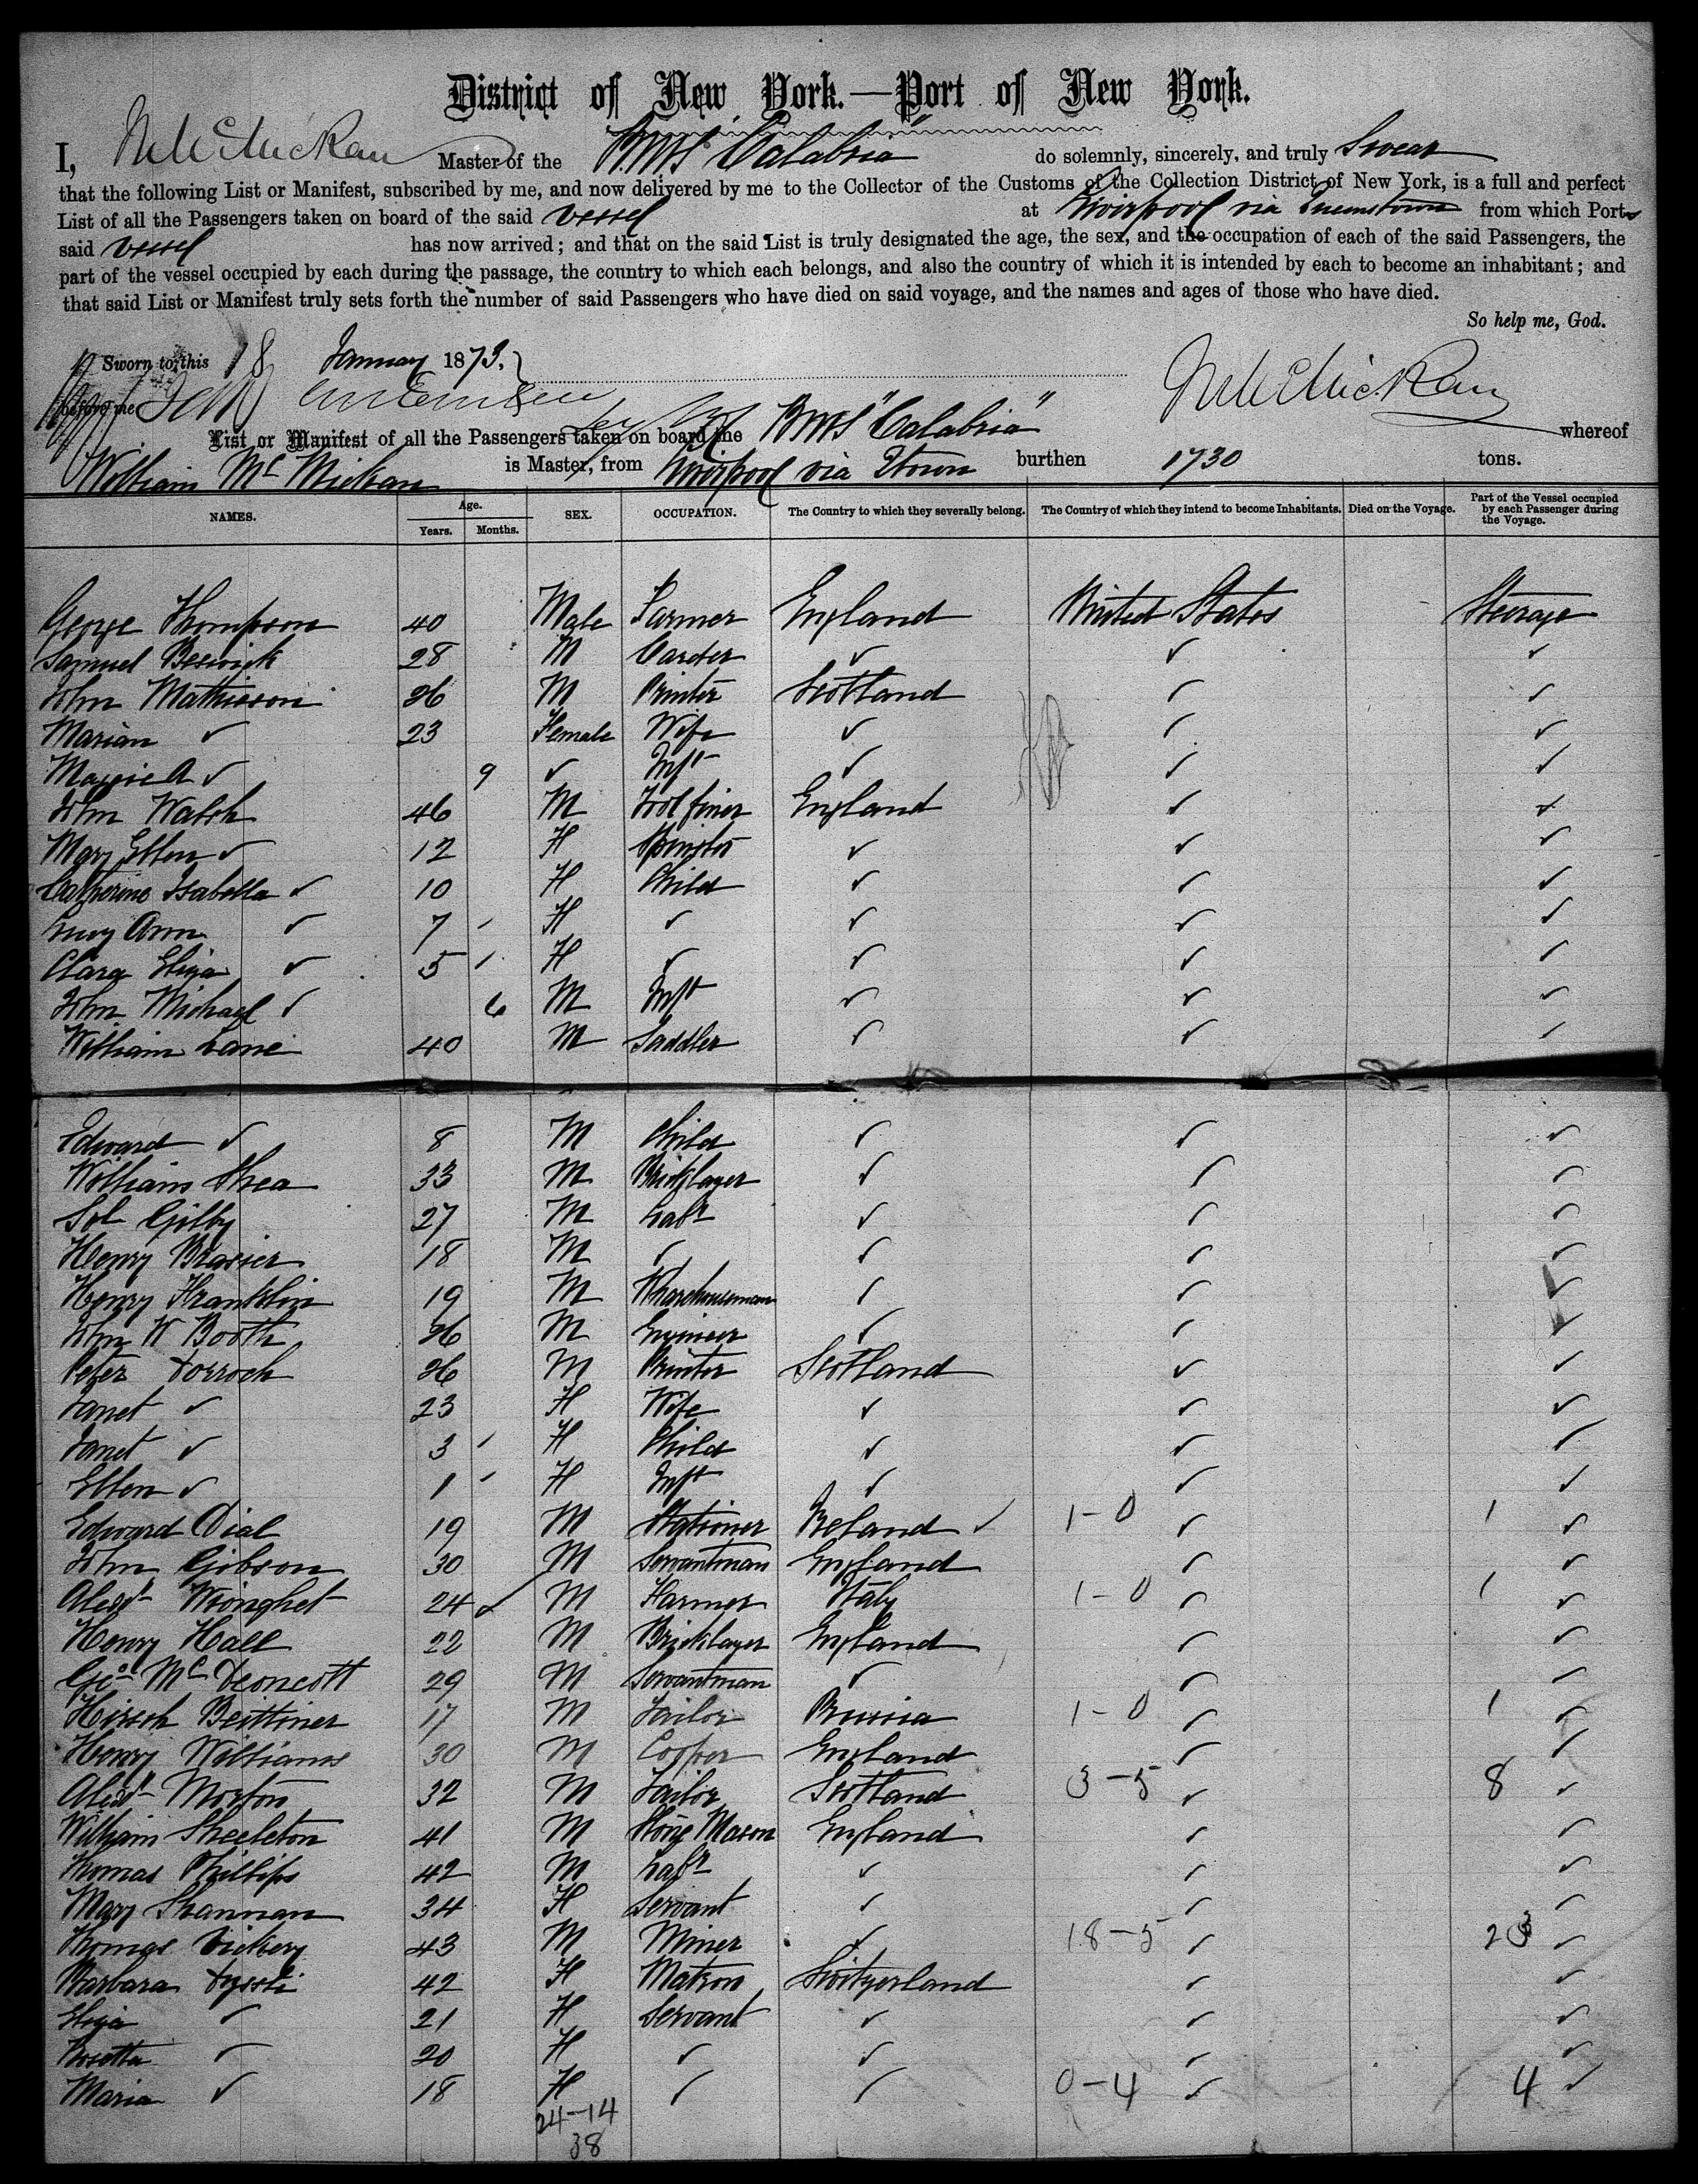 District of New York.—Port of New York.
I, Master of the RMS "Calabria" do solemnly, sincerely, and truly Swear
that the following List or Manifest, subscribed by me, and now delivered by me to the Collector of the Customs of the Collection District of New York, is a full and perfect
List of all the Passengers taken on board of the said vessel at Liverpool via Queenstown from which Ports
said vessel has now arrived; and that on the said List is truly designated the age, the sex, and the occupation of each of the said Passengers, the
part of the vessel occupied by each during the passage, the country to which each belongs, and also the country of which it is intended by each to become an inhabitant; and
that said List or Manifest truly sets forth the number of said Passengers who have died on said voyage, and the names and ages of those who have died.
So help me, God.
Sworn to this 18 January 1873.
before me
List or Manifest of all the Passengers taken on board the RMS "Calabria" whereof
William McMickan is Master, from Liverpool via Qtown burthen 1730 tons.
NAMES. Age. Years. Months. SEX. OCCUPATION. The Country to which they severally belong. The Country of which they intend to become Inhabitants. Died on the Voyage. Part of the Vessel occupied by each Passenger during the Voyage.
George Thompson 40 Male Farmer England United States Steerage
Samuel Beswick 28 M Carder ✓ ✓ ✓
John Mathieson 26 M Printer Scotland ✓ ✓
Marian ✓ 23 Female Wife ✓ ✓ ✓
Maggie A ✓ 9 ✓ Inft ✓ ✓ ✓
John Walsh 46 M England ✓ ✓
Mary Ellen ✓ 12 F Spinster ✓ ✓ ✓
Catherine Isabella ✓ 10 F Child ✓ ✓ ✓
Lucy Ann ✓ 7 F ✓ ✓ ✓ ✓
Clara Eliza ✓ 5 F ✓ ✓ ✓ ✓
John Michael ✓ 6 M Inft ✓ ✓ ✓
William Lane 40 M Saddler ✓ ✓ ✓
Edward ✓ 8 M Child ✓ ✓ ✓
William Shea 33 M Bricklayer ✓ ✓ ✓
Sol Gilby 27 M Labr ✓ ✓ ✓
Henry Brasier 18 M ✓ ✓ ✓ ✓
Henry Franklin 19 M Wharehouseman ✓ ✓ ✓
John W Booth 26 M Engineer ✓ ✓ ✓
Peter Dorroch 26 M Printer Scotland ✓ ✓
Janet ✓ 23 F Wife ✓ ✓ ✓
Janet ✓ 3 F Child ✓ ✓ ✓
Ellen ✓ 1 F Inft ✓ ✓ ✓
Edward Dial 19 M Stationer Ireland ✓ 1-0 ✓ 1 ✓
John Gibson 30 M Servantman England ✓ ✓
Alexr 24 ✓ M Farmer Italy 1-0 ✓ 1 ✓
Henry Hall 22 M Bricklayer England ✓ ✓
Geo 29 M Servantman ✓ ✓ ✓
Hirsch Beittiner 17 M Tailor 1-0 ✓ 1 ✓
Henry Williams 30 M Cooper England ✓ ✓
Alexr Morton 32 M Tailor Scotland 3-5 ✓ 8 ✓
William Skeeleton 41 M Stone Mason England ✓ ✓
Thomas Phillips 42 M Labr ✓ ✓ ✓
Mary Shannan 34 F Servant ✓ ✓ ✓
Thomas Vickery 43 M Miner ✓ 18-5 ✓ 23 ✓
Barbara 42 F Matron Switzerland ✓ ✓
Eliza ✓ 21 F Servant ✓ ✓ ✓
Rosetta ✓ 20 F ✓ ✓ ✓ ✓
Maria ✓ 18 F ✓ ✓ 0-4 ✓ 4 ✓
24-14
38